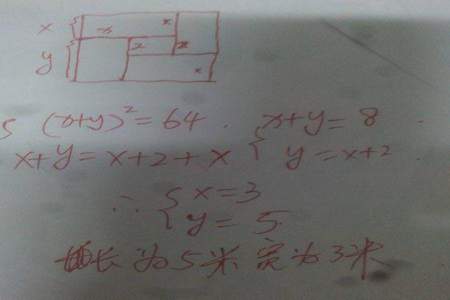 x
y
x
x
x
x
x
S (x+y)²=64. x+y=8
x+y=x+2+x { y=x+2
∴ { x=3
y=5
长为5米宽为3米